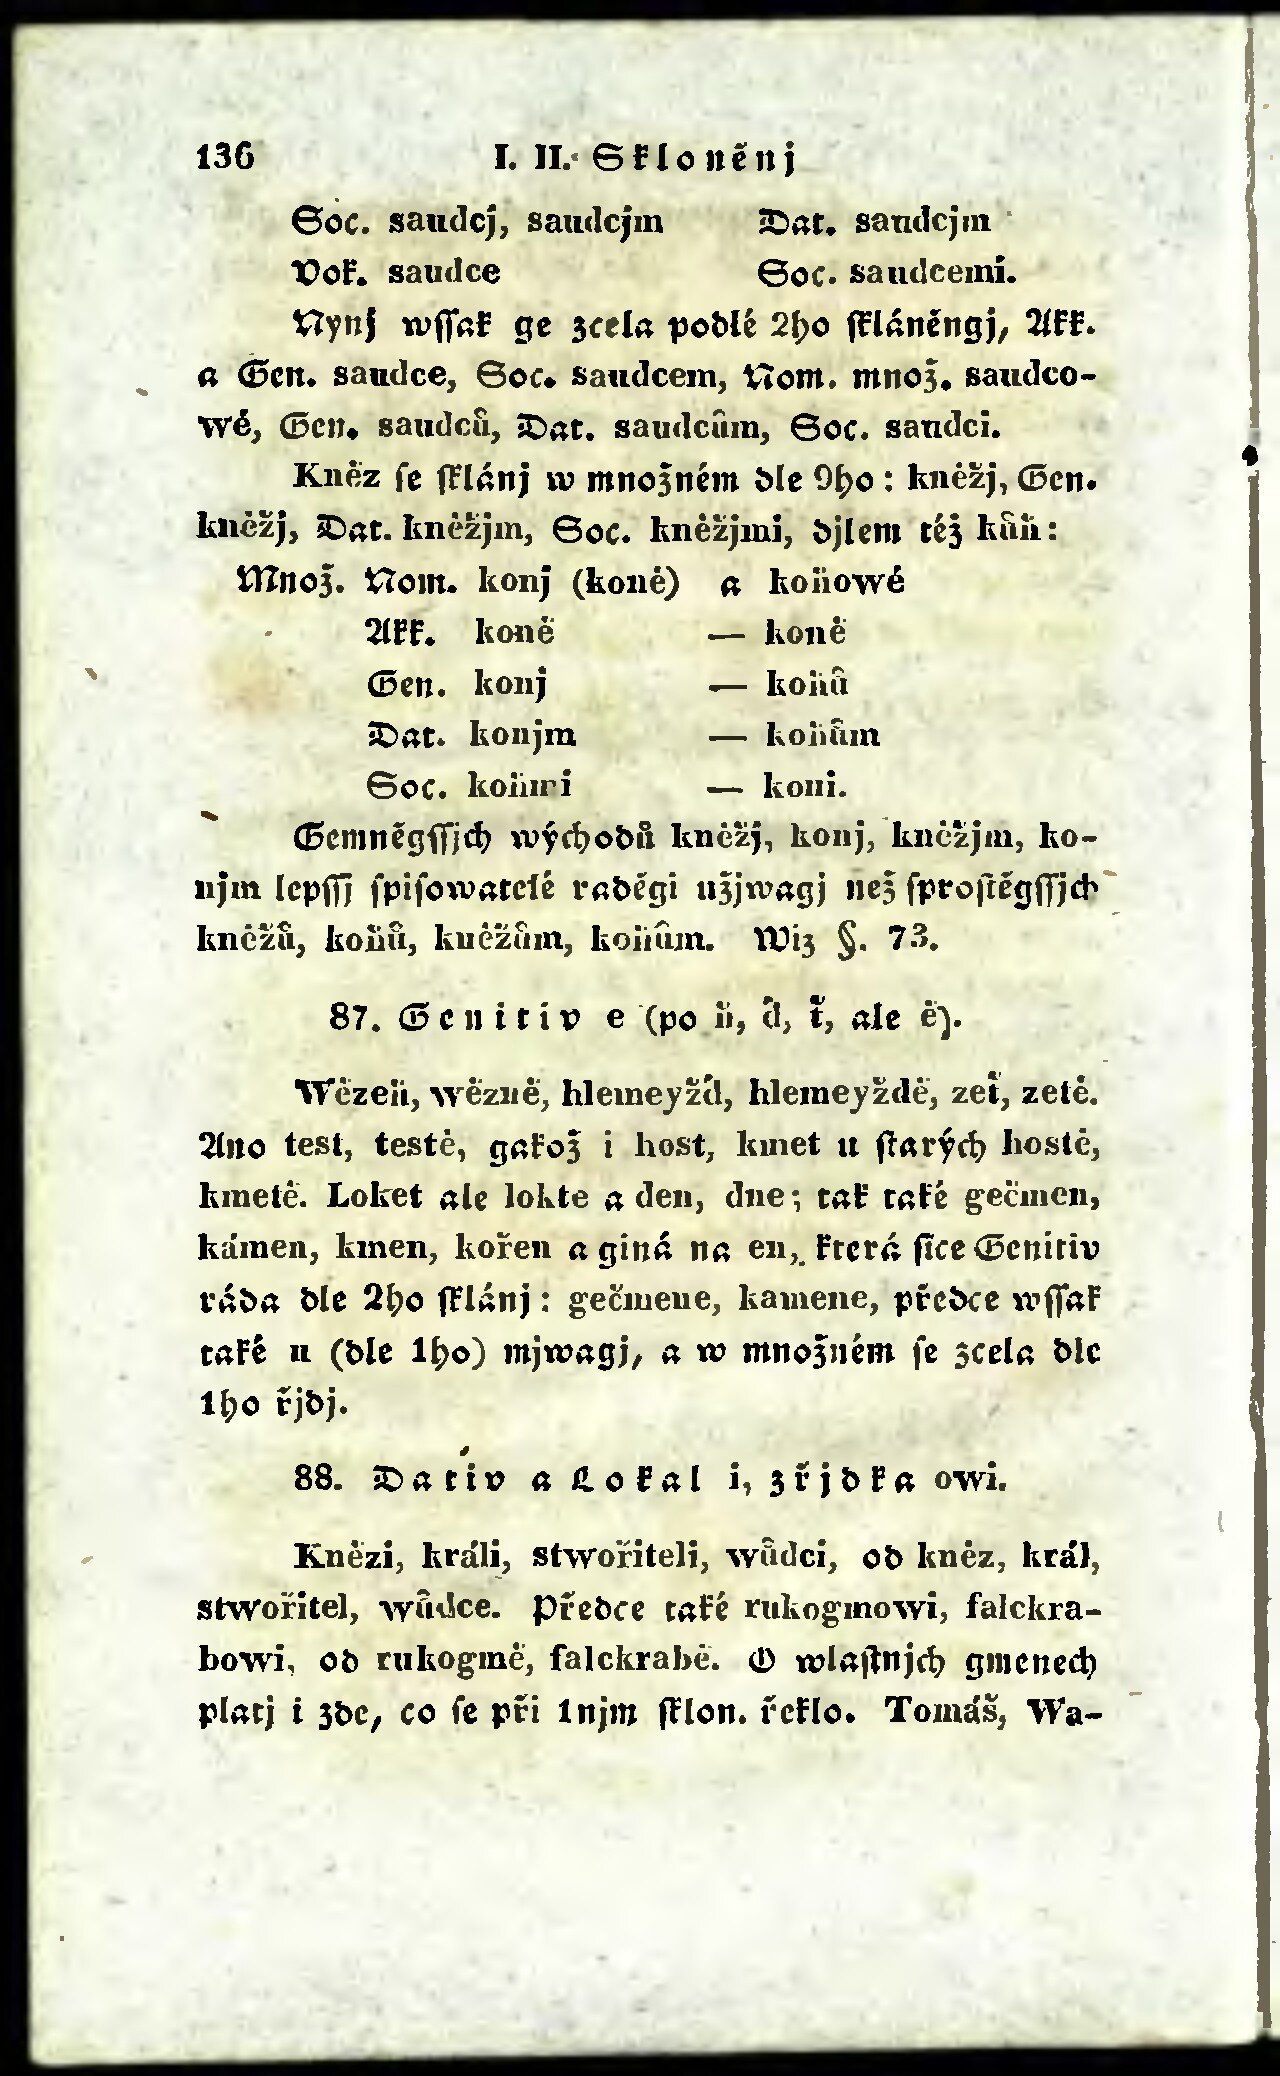 136 I. II. Skloněnj
Soc. saudcj, saudcjm Dat. saudcjm
Vok. saudce Soc. saudcemi.
Nynj wſſak ge zcela podlé 2ho ſkláněngj, Akk.
a Gen. saudce, Soc. saudcem, Nom. množ. saudco-
wé, Gen. saudců, Dat. saudcům, Soc. saudci.
Kněz ſe ſklánj w množném dle 9ho: kněžj, Gen.
kněžj, Dat. kněžjm, Soc. kněžjmi, djlem též kůň:
Množ. Nom. konj (koně) a koňowé
Akk. koně — koně
Gen. konj — koňů
Dat. konjm — koňům
Soc. koňmi — koni.
Gemněgſſjch wýchodů kněžj, konj, kněžjm, ko-
njm lepſſj ſpiſowatelé raděgi užjwagj než ſproſtěgſſjch
kněžů, koňů, kněžům, koňům. Wiz §. 73.
87. Genitiv e (po ň, ď, ť, ale ě).
Wězeň, wězně, hlemeyžď, hlemeyždě, zeť, zetě.
Ano test, testě, gakož i host, kmet u ſtarých hostě,
kmetě. Loket ale lokte a den, dne; tak také gečmen,
kámen, kmen, kořen a giná na en, která ſice Genitiv
ráda dle 2ho ſklánj: gečmene, kamene, předce wſſak
také u (dle 1ho) mjwagj, a w množném ſe zcela dle
1ho řjdj.
88. Dativ a Lokal i, zřjdka owi.
Knězi, králi, stwořiteli, wůdci, od kněz, král,
stwořitel, wůdce. Předce také rukogmowi, falckra-
bowi, od rukogmě, falckrabě. O wlaſtnjch gmenech
platj i zde, co ſe při 1njm ſklon. řeklo. Tomáš, Wa-